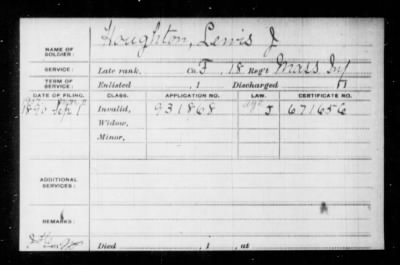 Houghton, Lewis J
NAME OF SOLDIER:
SERVICE: Late rank, Co. F, 18 Reg't Mass Inf
TERM OF SERVICE: Enlisted , 1 Discharged , 1
DATE OF FILING. CLASS. APPLICATION NO. LAW. CERTIFICATE NO.
1890 Sep 1 Invalid, 931868 J 671656
Widow,
Minor,
ADDITIONAL SERVICES:
REMARKS:
Died , 1 , at